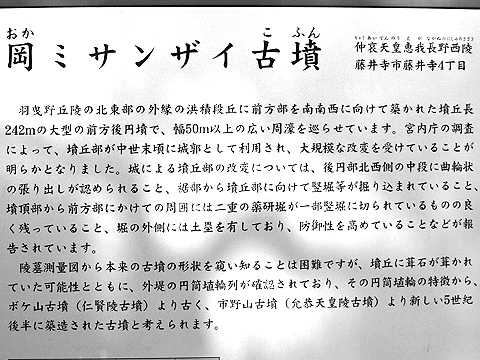 おか こ ふん
岡ミサンザイ古墳
ちゅうあいてんのう え が ながのにしのみささぎ
仲哀天皇恵我長野西陵
藤井寺市藤井寺4丁目
羽曳野丘陵の北東部の外縁の洪積段丘に前方部を南南西に向けて築かれた墳丘長
242mの大型の前方後円墳で、幅50m以上の広い周濠を巡らせています。宮内庁の調査
によって、墳丘部が中世末頃に城郭として利用され、大規模な改変を受けていることが
明らかとなりました。城による墳丘部の改変については、後円部北西側の中段に曲輪状
の張り出しが認められること、裾部から墳丘部に向けて竪堀等が掘り込まれていること、
墳頂部から前方部にかけての周囲には二重の薬研堀が一部竪堀に切られているものの良
く残っていること、堀の外側には土塁を有しており、防御性を高めていることなどが報
告されています。
陵墓測量図から本来の古墳の形状を窺い知ることは困難ですが、墳丘に葺石が葺かれ
ていた可能性とともに、外堤の円筒埴輪列が確認されており、その円筒埴輪の特徴から、
ボケ山古墳（仁賢陵古墳）より古く、市野山古墳（允恭天皇陵古墳）より新しい5世紀
後半に築造された古墳と考えられます。